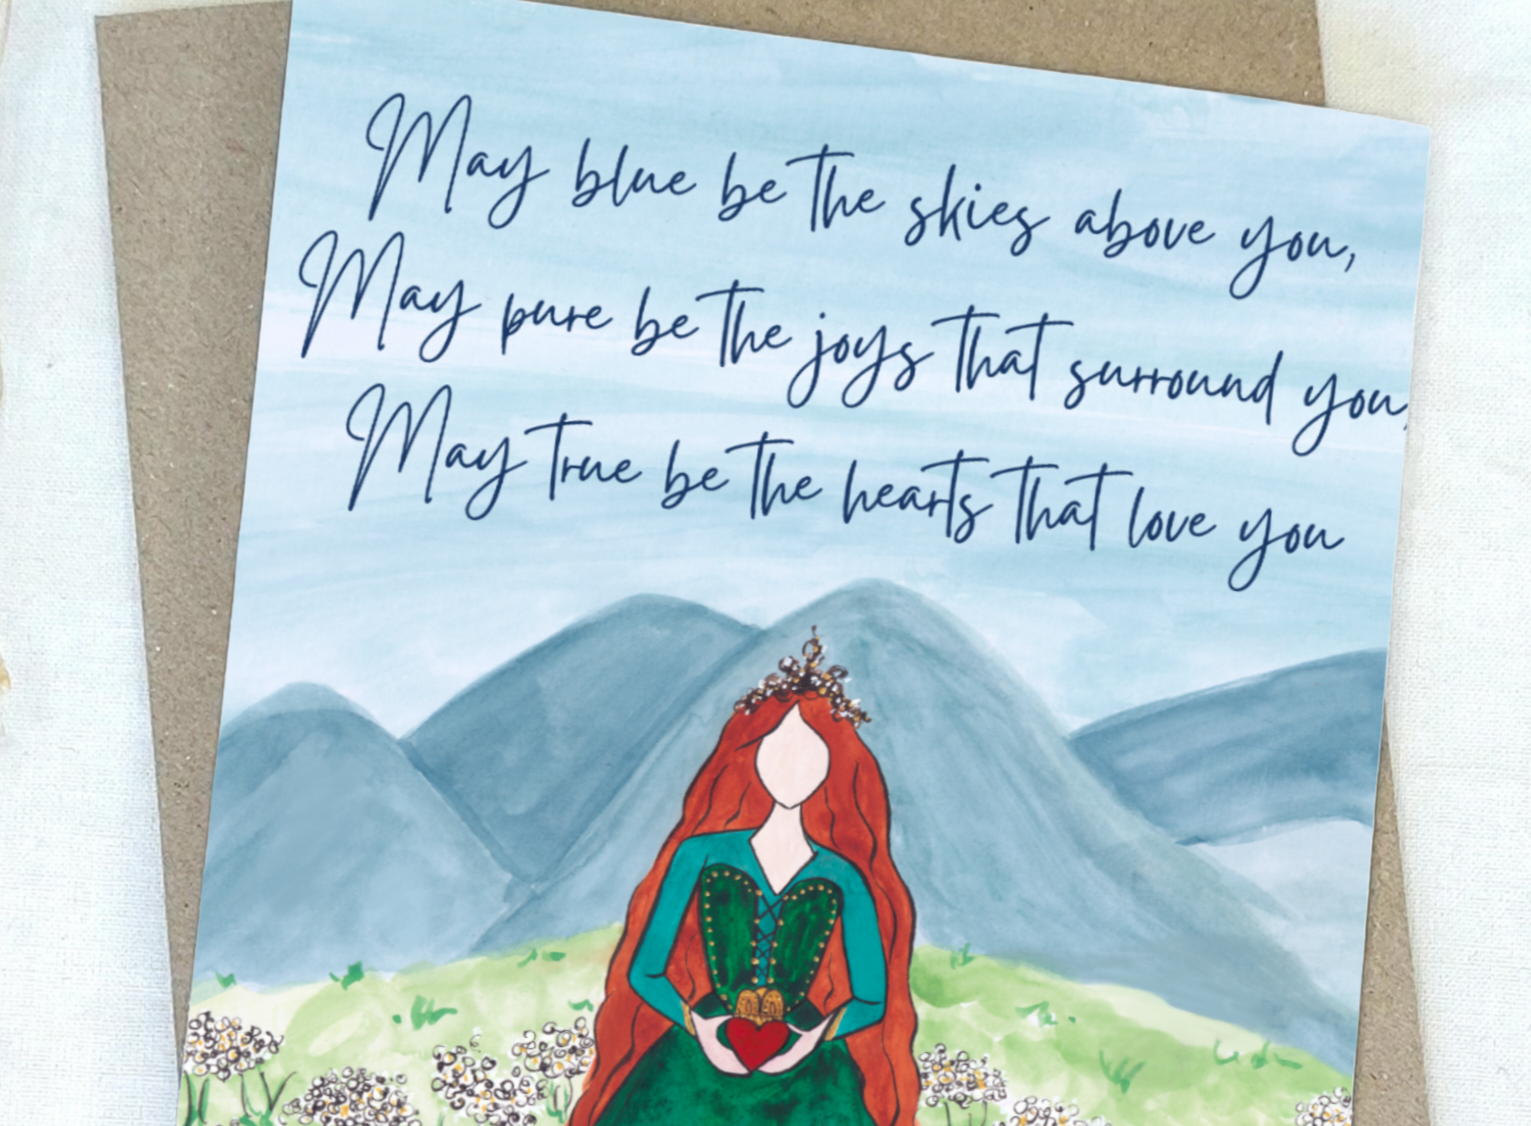 May blue be the skies above you,
May pure be the joys that surround you,
May true be the hearts that love you